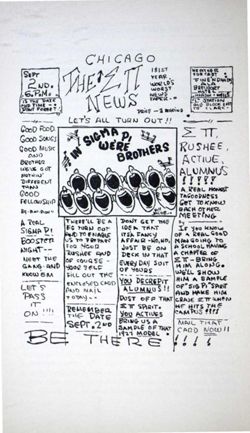 CHICAGO
THE ΣΠ
NEWS
SEPT
2ND.
6 P.M.
IS THE DATE
AND TIME –
DON'T FORGET.
1ST
YEAR
WORLD'S
WORST
NEWS
PAPER
LET'S ALL TURN OUT!!
GOOD FOOD.
GOOD SONG.
GOOD MUSIC
AND
BROTHER
WE'VE GOT
DIFFERENT
THAN
GOOD
FELLOWSHIP
A REAL
SIGMA PI
BOOSTER
NIGHT –
MEET THE
GANG AND
KNOW 'EM
LET'S
PASS
IT
ON !!!!
IN SIGMA PI
WERE
BROTHERS
THERE'LL BE A
TURN OUT
AND TO ENABLE
US TO PREPARE
FOR FOOD
RUSHEE AND
OF COURSE –
YOUR SELF
FILL OUT THE
ENCLOSED CARD
AND MAIL
TODAY –
REMEMBER
THE DATE
SEPT. 2ND
DON'T GET THE
IDEA THAT
ITS FANCY
AFFAIR – NO, NO,
JUST BE ON
DECK IN THAT
EVERY DAY SUIT
OF YOURS
YOU DECREPIT
ALUMNUS!!
DUST OFF THAT
ΣΠ SPIRIT.
YOU ACTIVES
BRING US A
SAMPLE OF THAT
1927 MODEL
ΣΠ
RUSHEE,
ACTIVE,
ALUMNUS
A REAL HONEST
GET TO KNOW
EACH OTHER
MEETING
IF YOU KNOW
OF A REAL GOOD
MAN GOING TO
A SCHOOL HAVING
A CHAPTER OF
ΣΠ – BRING
HIM ALONG.
WE'LL SHOW
HIM A SAMPLE
OF "SIG PI" SPIRIT
AND MAKE HIM
CRAVE ΣΠ WHEN
HE HITS THE
CAMPUS !!!!
MAIL THAT
CARD NOW!!
BE THERE !!!!